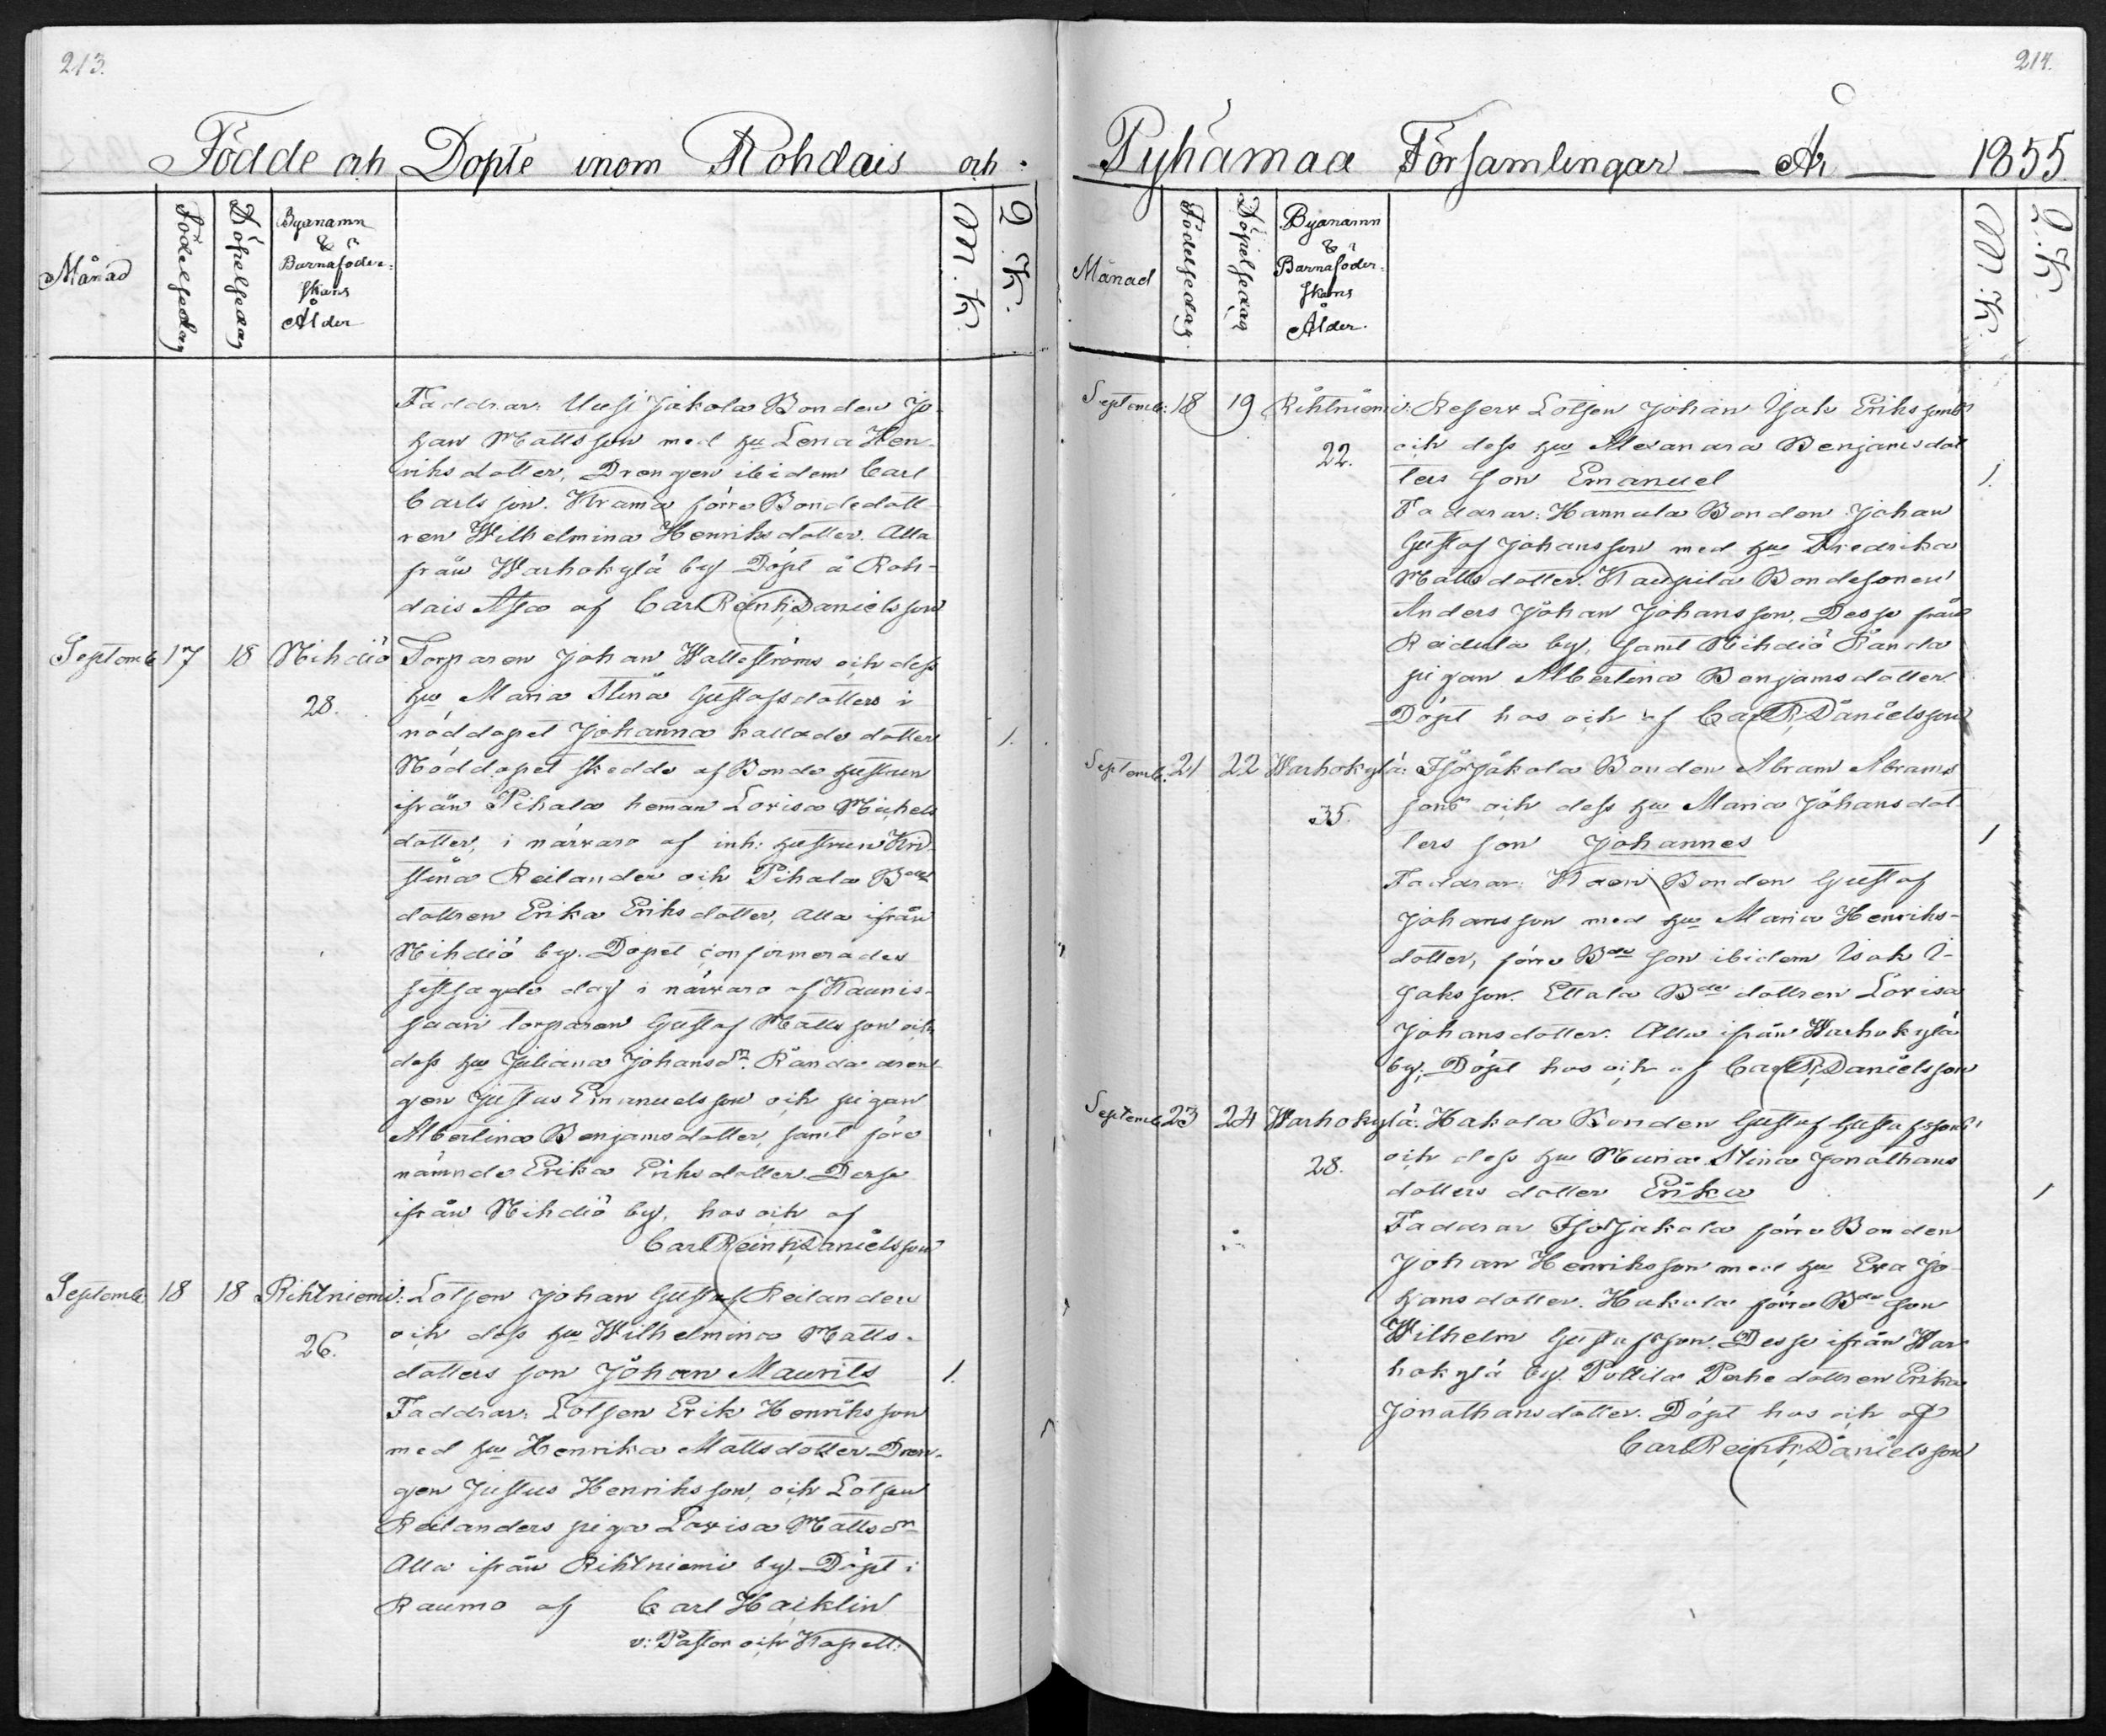 213.
Födde och Döpte inom Rohdais och
Månad
Födelsedag
Döpelsedag
Byanamn
&
Barnaföder-
skans
Ålder
M. K.
Q. K.
Faddrar: Uusi Jakola Bonden Jo-
han Mattsson med hu Lena Hen-
riks dotter, Drengen ibidem Carl
Carlsson. Krama förre Bondedott
ren Wilhelmina Henriksdotter. Alla
från Warhokylä by Döpt å Roh-
dais Åsa af Carl Reinh; Danielsson
Septemb 17 18 Nihdiö Torparen Johan Walleströms och dess
28. hu Maria Stina Gustafsdotters i
nöddopet Johanna kallade dotter 1.
Nöddopet skedde af Bonde hustrun
ifrån Pihala heman Lovisa Michels
dotter, i närvaro af inh: hustrun Kri-
stina Reilander och Pihala Bde
dottren Erika Eriksdotter, alla ifrån
Nihdiö by. Dopet conformerades
sistsagde dag i närvaro af Kaunis-
saari torparen Gustaf Mattsson och
dess hu Juliana Johansdr. Randa dren-
gen Justus Emanuelsson och pigan
Albertina Benjamsdotter, samt före
nämnde Erika Eriksdotter. Desse
ifrån Nihdiö by, hos och af
Carl Reinh; Danielsson
Septemb 18 18 Rihtniemi: Lotsen Johan Gustaf Reilanders
26. och dess hu Wilhelmina Matts-
dotters son Johan Maurits 1.
Faddrar: Lotsen Erik Henriksson
med hu Henrika Mattsdotter Dren-
gen Justus Henriksson, och Lotsen
Reilanders piga Lovisa Mattsdr
Alla ifrån Rihtniemi by. Döpt i
Raumo af Carl Haiklin
v: Pastor och Kapell:
214.
Pyhämaa Församlingar — År — 1855.
Månad
Födelsedag
Döpelsedag
Byanamn
&
Barnaföder-
skans
Ålder.
M. K.
Q. K.
Septemb: 18 19 Rihtniemi: Reserv Lotsen Johan Isak Erikssons
22. och dess hu Alexandra Benjamsdot
ters son Emanuel 1.
Faddrar: Hannula Bonden Johan
Gustaf Johansson med hu Fredrika
Mattsdotter. Kaupila Bondesonen
Anders Johan Johansson, Desse från
Reidula by, samt Nihdiö Randa
pigan Albertina Benjamsdotter
Döpt hos och af Carl R; Danielsson
Septemb. 21 22 Warhokylä: Isojakola Bonden Abram Abrams
35. sons och dess hu Maria Johansdot
ters son Johannes 1
Faddrar: Kaeni Bonden Gustaf
Johansson med hu Maria Henriks-
dotter, förre Bde son ibidem Isak I-
saksson. Ettala Bde dottren Lovisa
Johansdotter. Alla ifrån Warhokylä
by; Döpt hos och af Carl R; Danielsson
Septemb 23 24 Warhokylä: Hakola Bonden Gustaf Gustafssons
28. och dess hu Maria Stina Jonathans
dotters dotter Erika 1
Faddrar Isojakola förre Bonden
Johan Henriksson med hu Eva Jo-
hansdotter. Hakola förre Bde son
Wilhelm Gustafsson. Desse ifrån War
hokylä by. Pottila Perhe dottren Erika
Jonathansdotter. Döpt hos och af
Carl Reinh; Danielsson